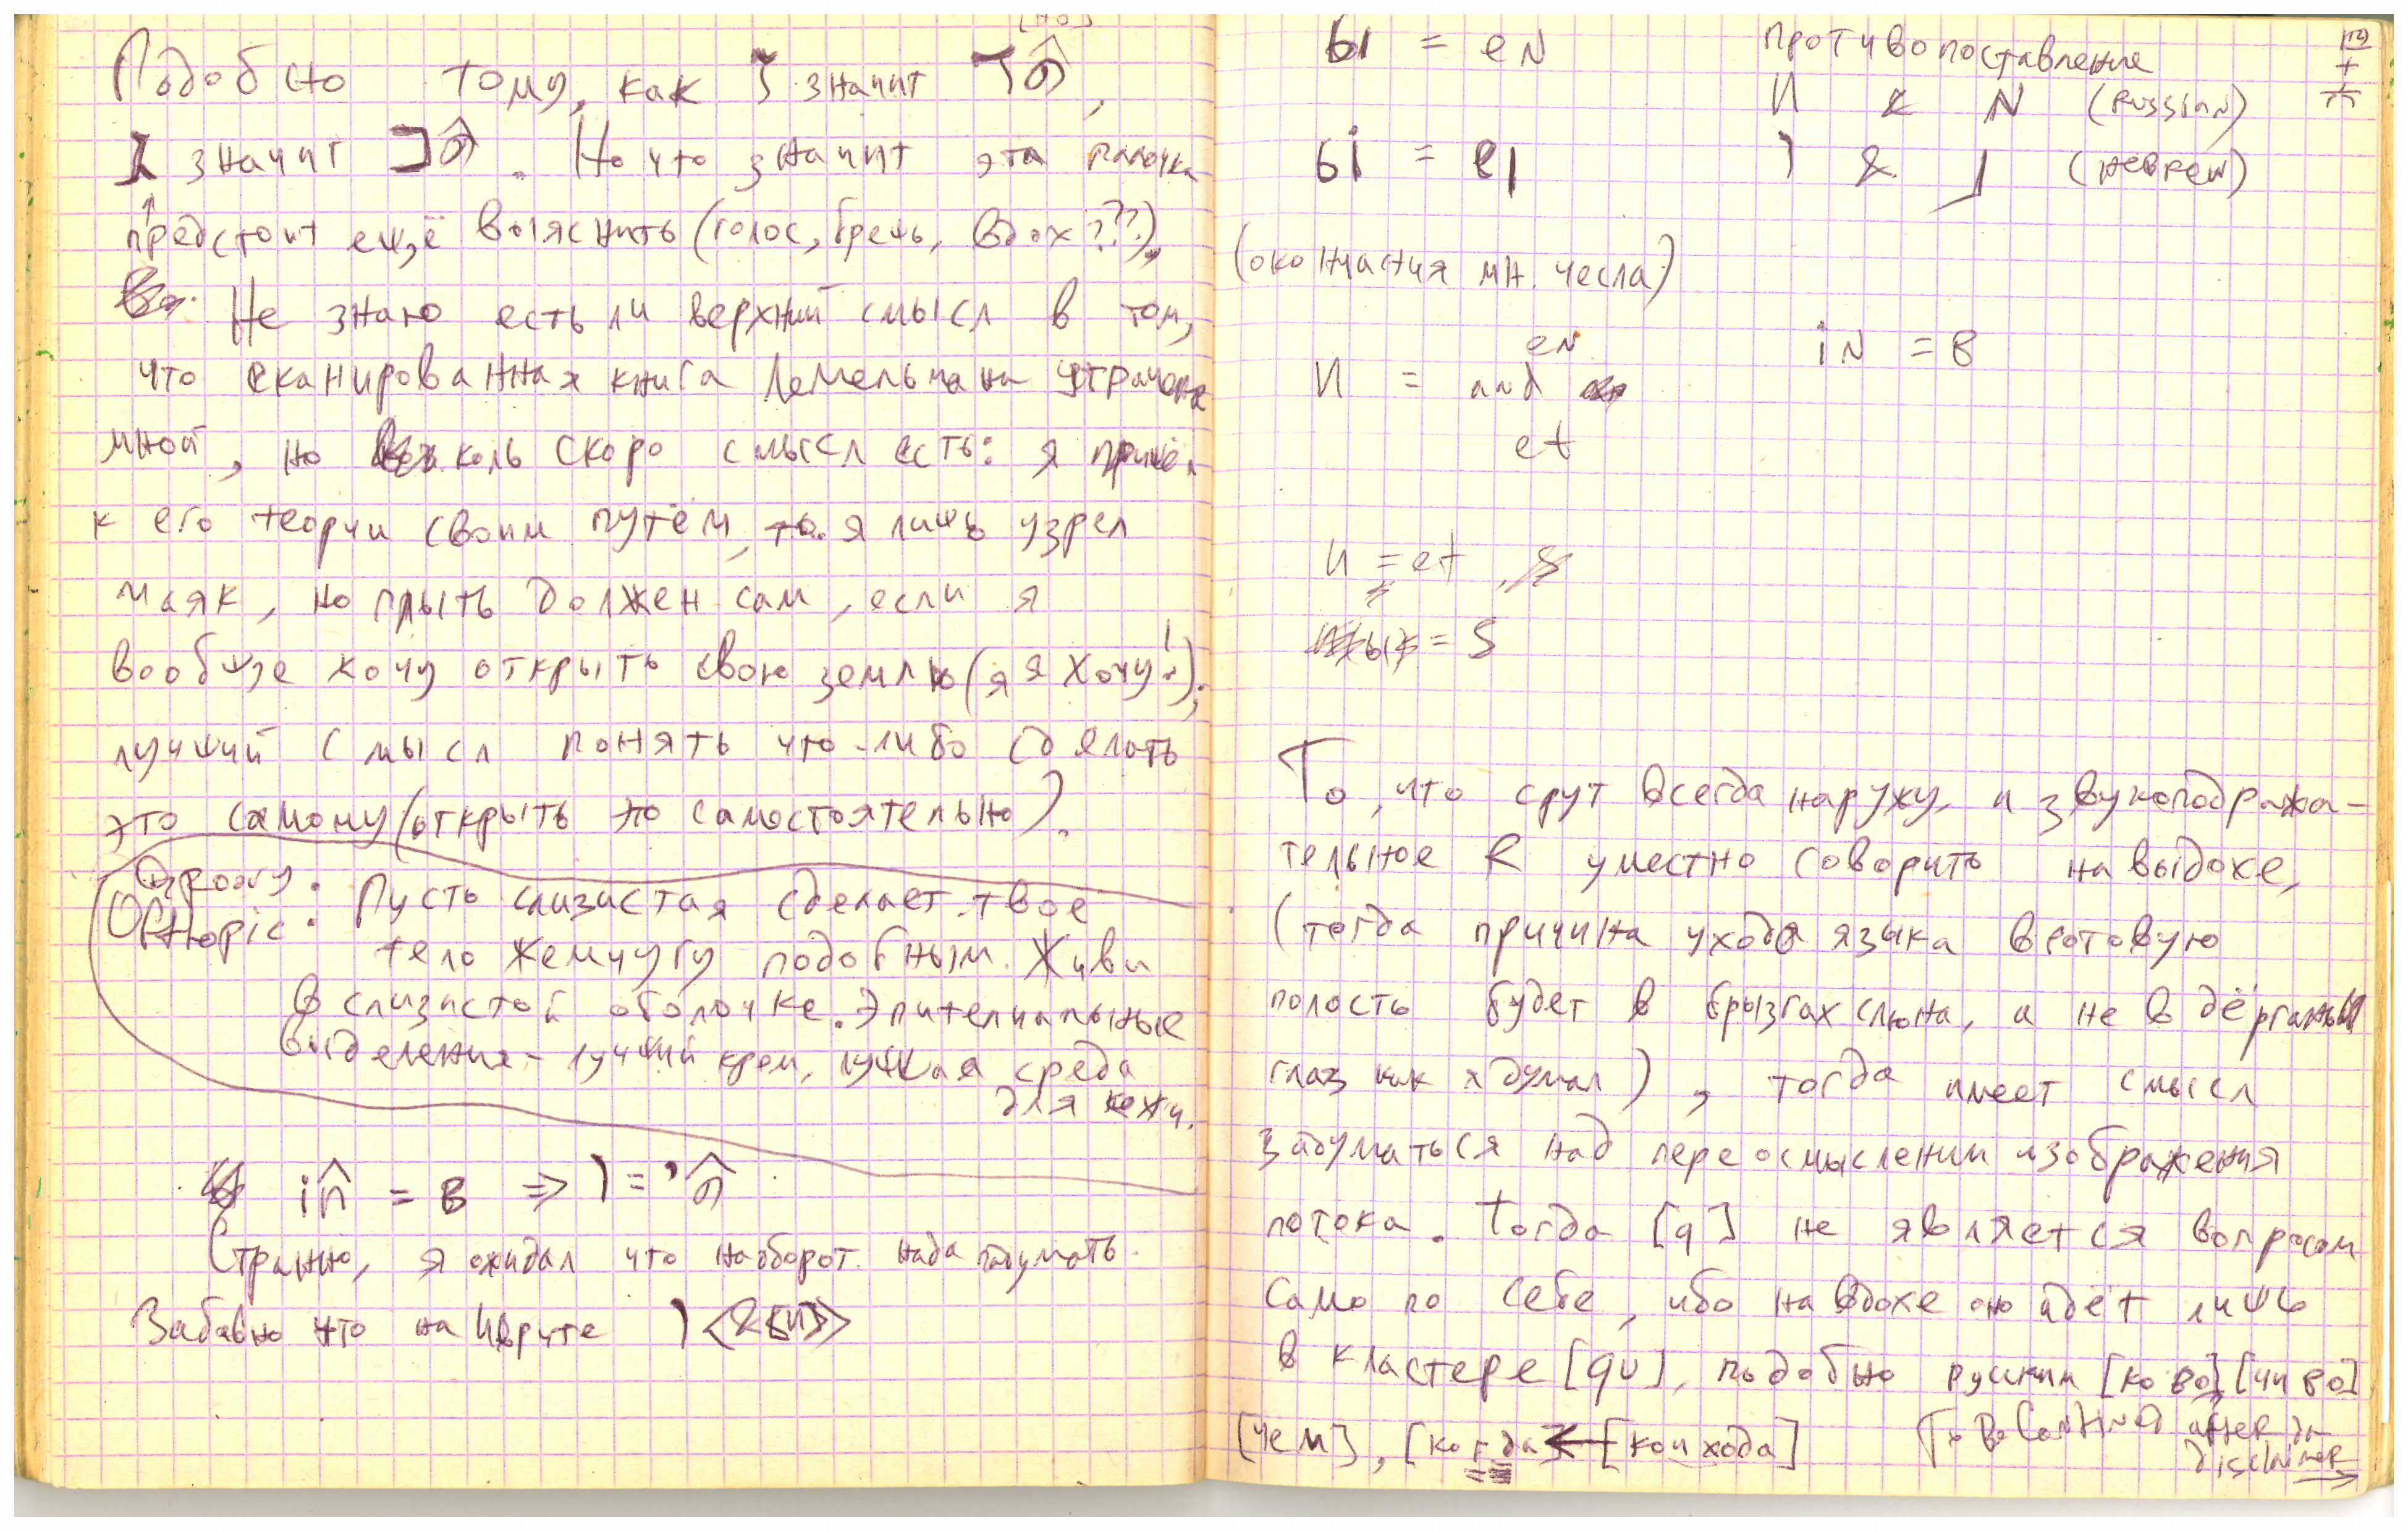 Подобно тому, как ז значит
значит . Но что значит эта палочка
предстоит ещё выяснить (голос, речь, вдох???),
Не знаю есть ли верхний смысл в том,
что сканированная книга Лемельмана утрачена
мной, но коль скоро смысл есть: я пришёл
к его теории своим путём, то я лишь узрел
маяк, но плыть должен сам, если я
вообще хочу открыть свою землю (я я хочу!);
лучший смысл понять что-либо сделать
это самому (открыть это самостоятельно).
Пусть слизистая сделает твое
тело жемчугу подобным. Живи
в слизистой оболочке. Эпителиальные
выделения - лучший крем, лучшая среда
для кожи.
in̂ = в ⇒
Странно, я ожидал что наоборот. надо подумать.
Забавно что на иврите
ы = eN
противопоставление
И & N (Russian)
ыi = ej
(Hebrew)
(окончания мн. числа)
eN
И = and
et
iN = в
и = et
= S
То, что срут всегда наружу, и звукоподража-
тельное R уместно говорить на выдохе,
(тогда причина ухода языка в ротовую
полость будет в брызгах слюна, а не в дёрганьи
глаз как я думал), тогда имеет смысл
задуматься над переосмыслении изображения
потока. Тогда [q] не является вопросом
само по себе, ибо на вдохе оно идёт лишь
в кластере [qu], подобно руским [ково] [чиво]
[чем], [когда ← [кои хода]
To Be Continued after
disclaimer →